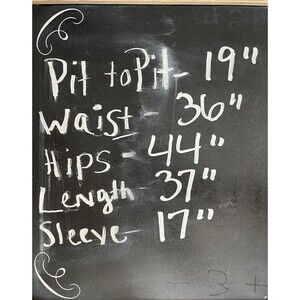 Pit to Pit - 19"
Waist - 36"
Hips - 44"
Length - 37"
Sleeve - 17"